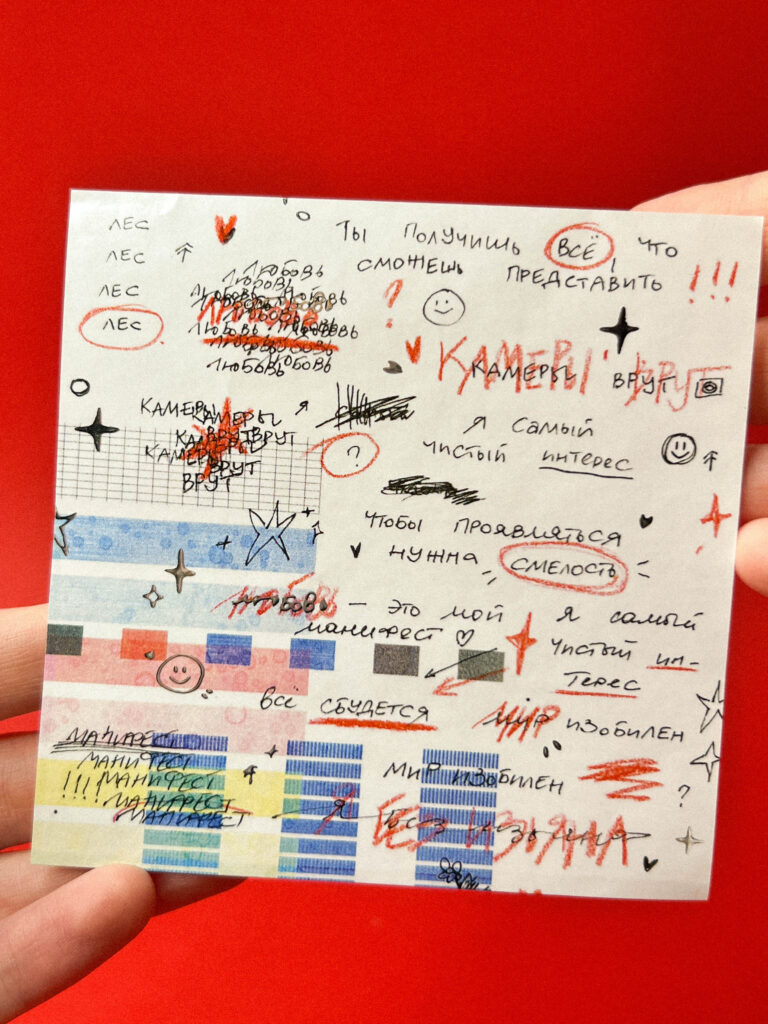 ЛЕС
ЛЕС
ЛЕС
ЛЕС
ТЫ ПОЛУЧИШЬ ВСЁ, ЧТО
СМОЖЕШЬ ПРЕДСТАВИТЬ !!!
?
ЛЮБОВЬ
ЛЮБОВЬ
ЛЮБОВЬ
ЛЮБОВЬ ЛЮБОВЬ
ЛЮБОВЬ
ЛЮБОВЬ
КАМЕРЫ ВРУТ
КАМЕРЫ ВРУТ
КАМЕРЫ
КАМЕРЫ
КАМЕРЫ
ВРУТ ВРУТ
КАМЕРЫ ВРУТ
ВРУТ
ВРУТ
?
Я САМЫЙ
ЧИСТЫЙ ИНТЕРЕС
ЧТОБЫ ПРОЯВЛЯТЬСЯ
НУЖНА СМЕЛОСТЬ
ЛЮБОВЬ — ЭТО МОЙ
МАНИФЕСТ
Я САМЫЙ
ЧИСТЫЙ ИН-
ТЕРЕС
ВСЁ СБУДЕТСЯ
МИР ИЗОБИЛЕН
МАНИФЕСТ
МАНИФЕСТ
!!!! МАНИФЕСТ
МАНИФЕСТ
МАНИФЕСТ
МИР ИЗОБИЛЕН
?
Я БЕЗ ИЗЪЯНА